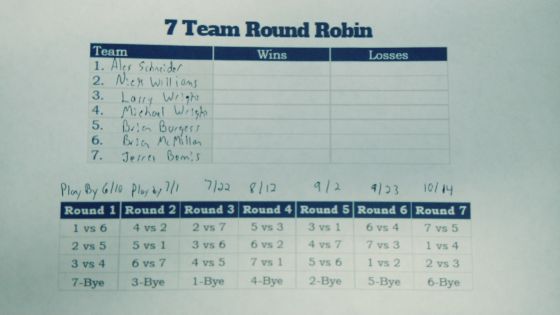 7 Team Round Robin
Team Wins Losses
1. Alex Schneider
2. Nick Williams
3. Larry Wright
4. Michael Wright
5. Brian Burgess
6. Brian McMillan
7.
Play By 6/10 Play by 7/1 7/22 8/12 9/2 9/23 10/14
Round 1 Round 2 Round 3 Round 4 Round 5 Round 6 Round 7
1 vs 6 4 vs 2 2 vs 7 5 vs 3 3 vs 1 6 vs 4 7 vs 5
2 vs 5 5 vs 1 3 vs 6 6 vs 2 4 vs 7 7 vs 3 1 vs 4
3 vs 4 6 vs 7 4 vs 5 7 vs 1 5 vs 6 1 vs 2 2 vs 3
7-Bye 3-Bye 1-Bye 4-Bye 2-Bye 5-Bye 6-Bye